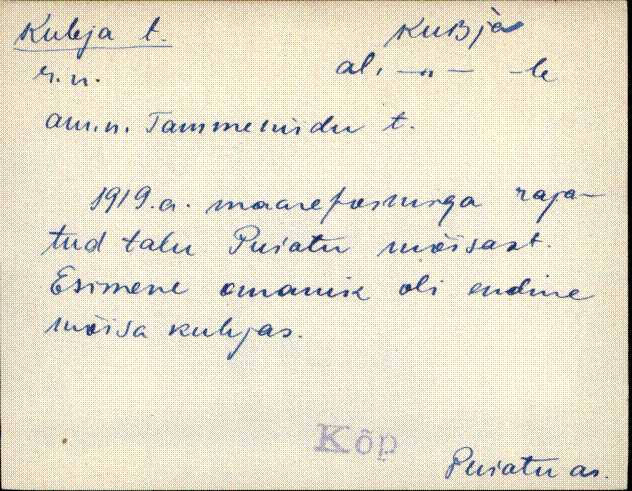 Kubja t. kuʙja
r.n. al. —„— -le
am.n. Tammeniidu t.
1919.a. maareformiga raja-
tud talu Puiatu mõisast.
Esimene omanik oli endine
mõisa kubjas.
Kõp
Puiatu as.